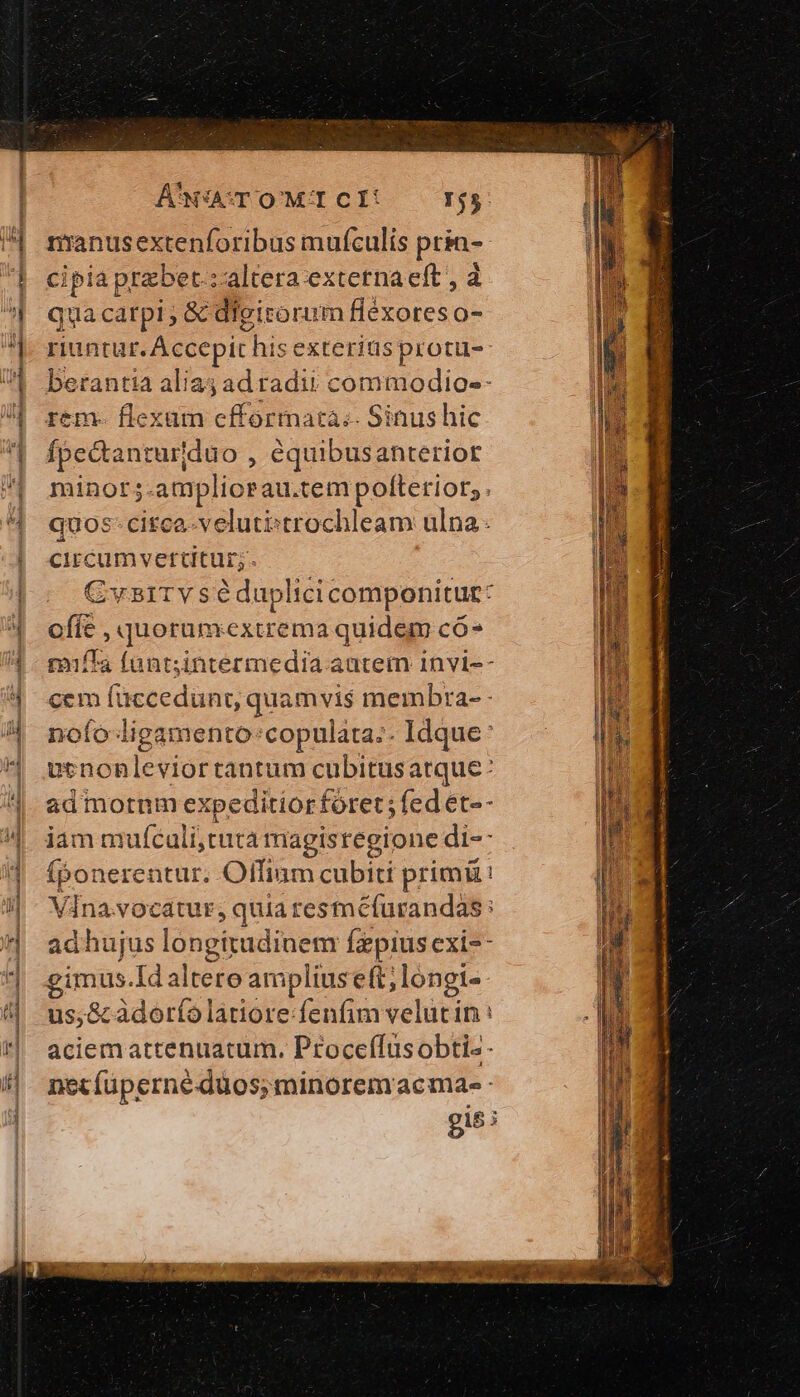 ANATOMICI 155
manus extenſoribus muſculis prin-
cipia præbet: altera externa eſt, à
qua carpi, & digitorum flexores o-
riuntur. Accepit his exterius protu-
berantia alia, ad radii commodio-
rem flexum efformata. Sinus hic
ſpectantur duo, è quibus anterior
minor; amplior autem poſterior,
quos circa veluti trochleam ulna
circumvertitur.
CVBITVS è duplici componitur
oſſe, quorum extrema quidem cõ-
miſſa ſunt; intermedia autem invi-
cem ſuccedunt, quamvis membra-
noſo ligamento copulata. Idque
ut non levior tantum cubitus atque
ad motum expeditior foret; ſed et-
iam muſculi, tuta magis regione di-
ſponerentur. Oſſium cubiti primũ
Vlna vocatur, quia res mẽſurandas
ad hujus longitudinem ſæpius exi-
gimus. Id altero amplius eſt, longi-
us, & à dorſo latiore ſenſim velut in
aciem attenuatum. Proceſſus obti-
net ſupernè duos, minorem ac ma-
gis